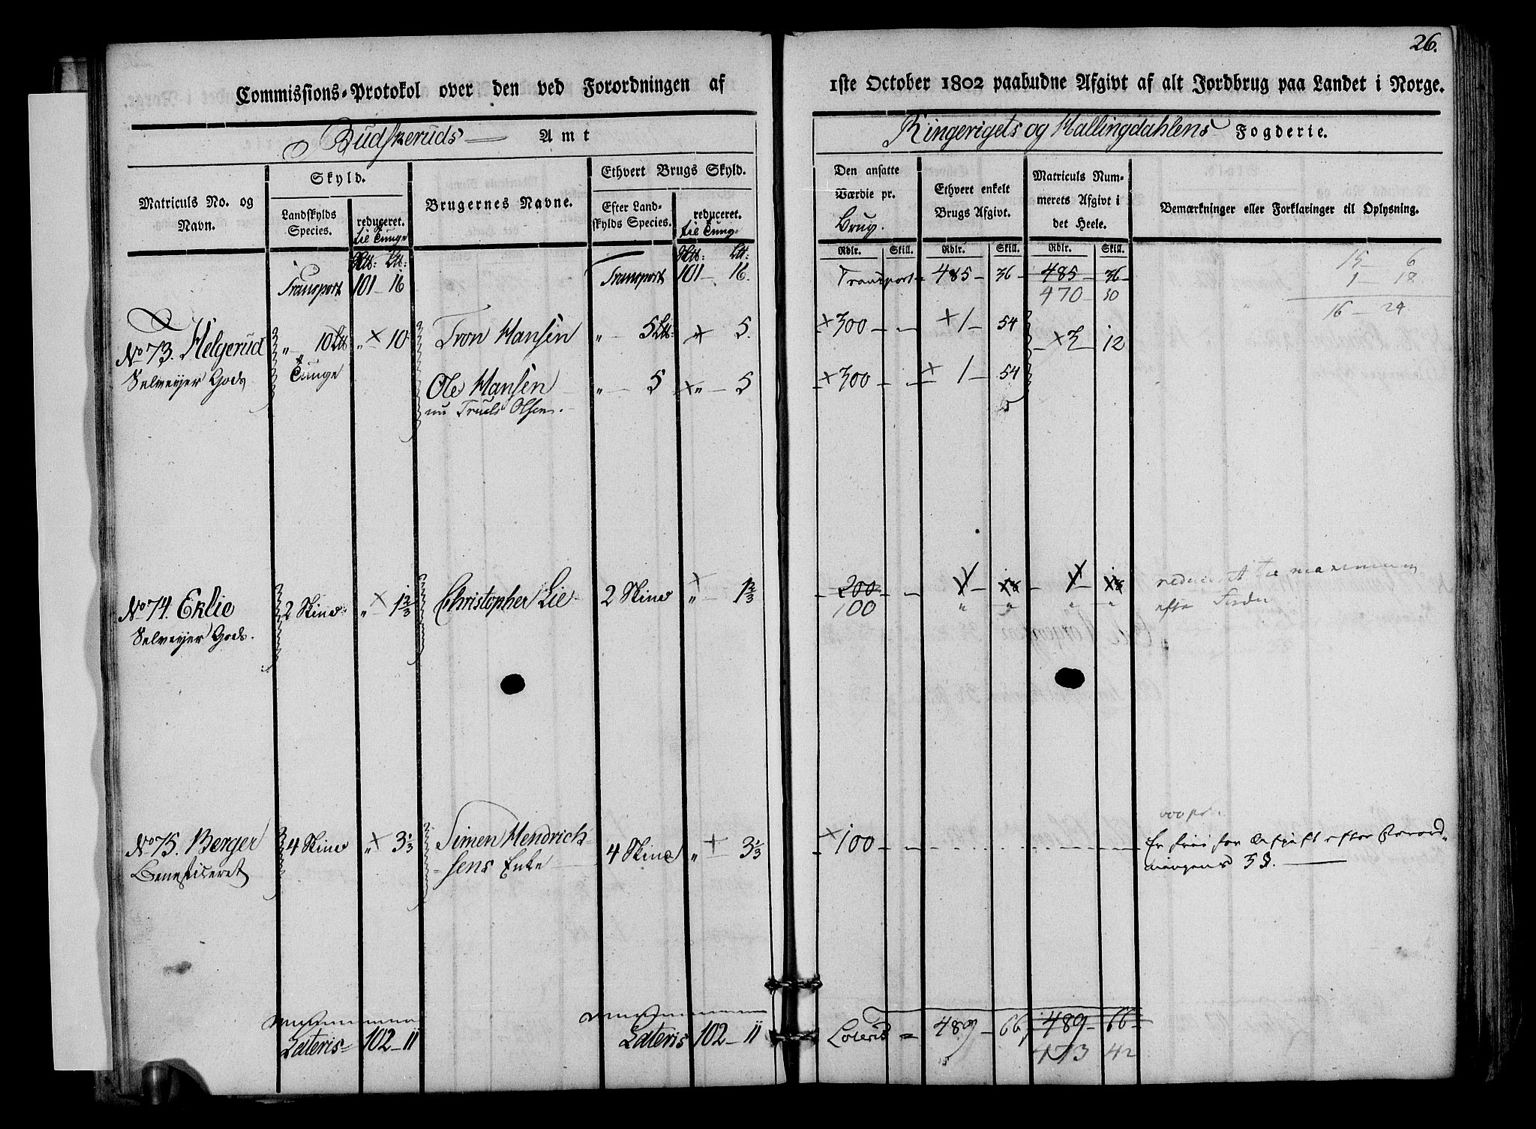 26.
Commissions-Protokol over den ved Forordningen af 1ste October 1802 paabudne Afgivt af alt Jordbrug paa Landet i Norge.
Budskeruds Amt
Ringerigets og Hallingdahlens Fogderie.
Matriculs No. og Navn.
Skyld.
Landskylds Species.
reduceret. til Tunge
Brugernes Navne.
Ethvert Brugs Skyld.
Efter Landskylds Species.
reduceret. til Tung.
Den ansatte Værdie pr. Brug.
Ethvert enkelt Brugs Afgivt.
Matriculs Nummerets Afgivt i det Heele.
Bemærkninger eller Forklaringer til Oplysning.
Rdlr. Skill. Rdlr. Skill. Rdlr. Skill.
Transport 101 16 Transport 101 16. Transport 485 36 485 36
470 30
15 6
1 18
16 24
No 73. Helgerud " 10 Ltt " × 10 Tron Hansen " 5 Ltt: × 5. × 300 × 1 54 × 3 12
Selveyer Gods Tunge
Ole Hansen " 5 × " 5 × 300 × 1 54
nu Truels Olsen.
No 74. Eklie 2 Skind " × 1 2/3 Christopher Lie 2 Skind " × 1 2/3 200
Selveyer Gods. 100 " " " "
reduceret til
No 75. Berger 4 Skind " × 3 1/3 Simen Hendrichsens Enke 4 Skind " + 3 1/3 × 100
Beneficeret
Er frie for Afgift efter Forordningens 3 §.
Lateris 102 11 Lateris 102 11 Lateris 489 66 489 66
473 42